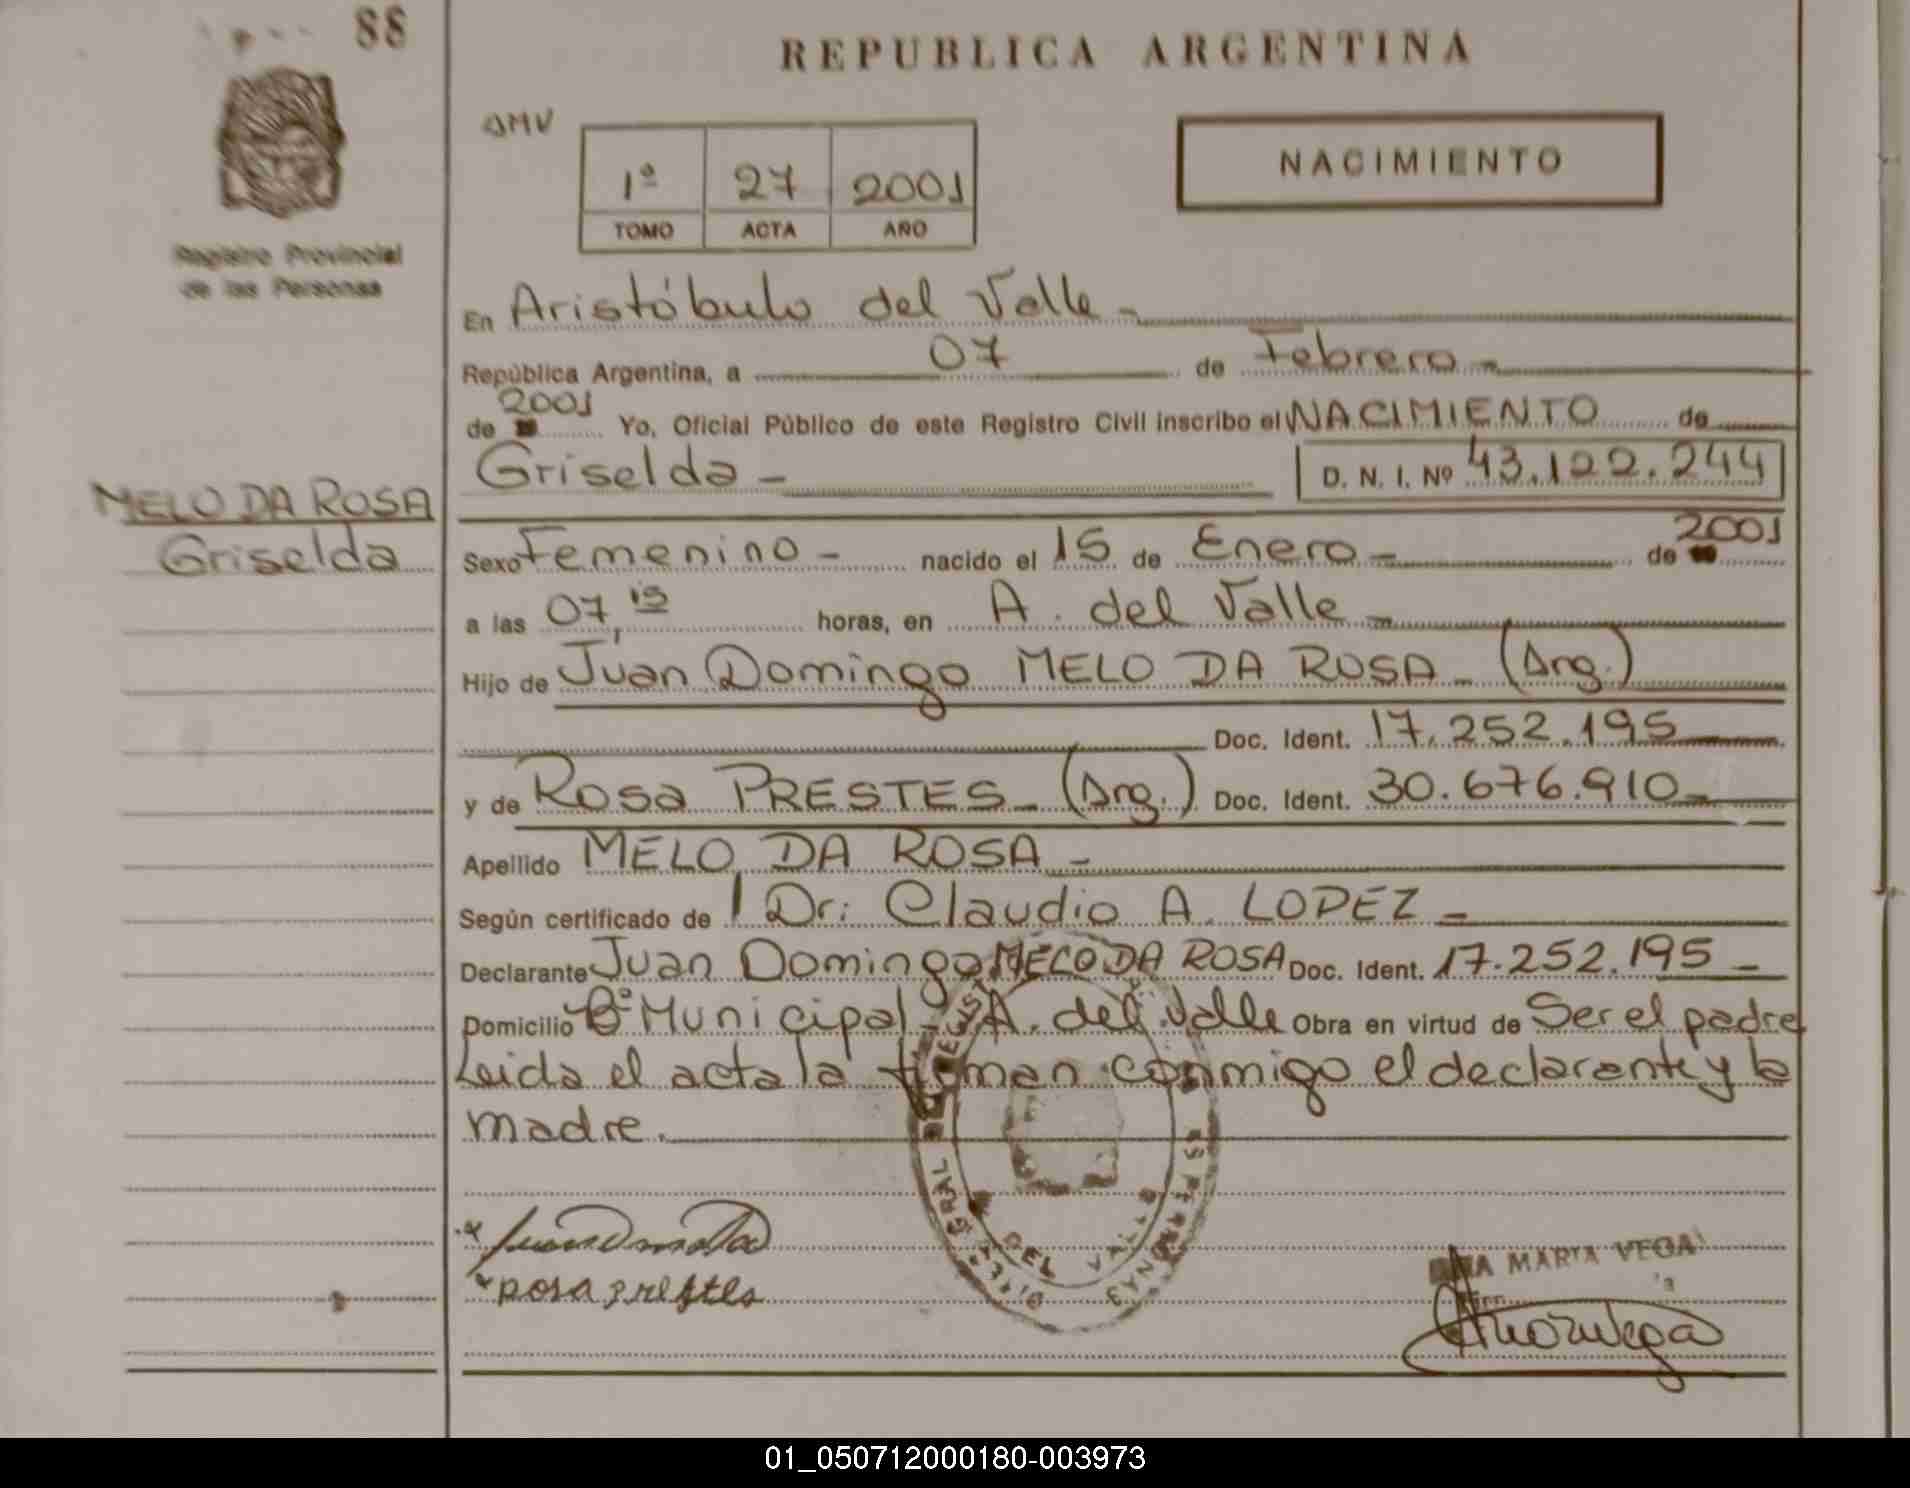 88
REPUBLICA ARGENTINA
Registro Provincial
de las Personas
AMV
1º 27 2001
TOMO ACTA AÑO
NACIMIENTO
En Aristóbulo del Valle -
República Argentina, a 07 de Febrero -
de 2001 Yo, Oficial Público de este Registro Civil inscribo el NACIMIENTO de
Griselda - D. N. I. Nº 43.122.244
MELO DA ROSA
Griselda
Sexo Femenino - nacido el 15 de Enero - de 2001
a las 07,15 horas, en A. del Valle -
Hijo de Juan Domingo MELO DA ROSA - (Arg.)
Doc. Ident. 17.252.195
y de Rosa PRESTES - (Arg.) Doc. Ident. 30.676.910 -
Apellido MELO DA ROSA -
Según certificado de Dr: Claudio A. LOPEZ -
Declarante Juan Domingo MELO DA ROSA Doc. Ident. 17.252.195 -
Domicilio Bº Municipal - A. del Valle Obra en virtud de Ser el padre
Leida el acta la firman conmigo el declarante y la
madre.
DEL VALLE
rosa prestes
MARIA VEGA
01_050712000180-003973